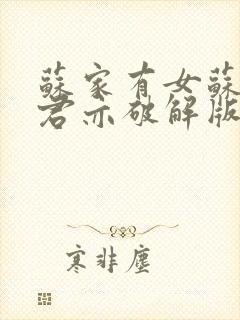 蘇家有女蘇
君亦破解版
寒非塵